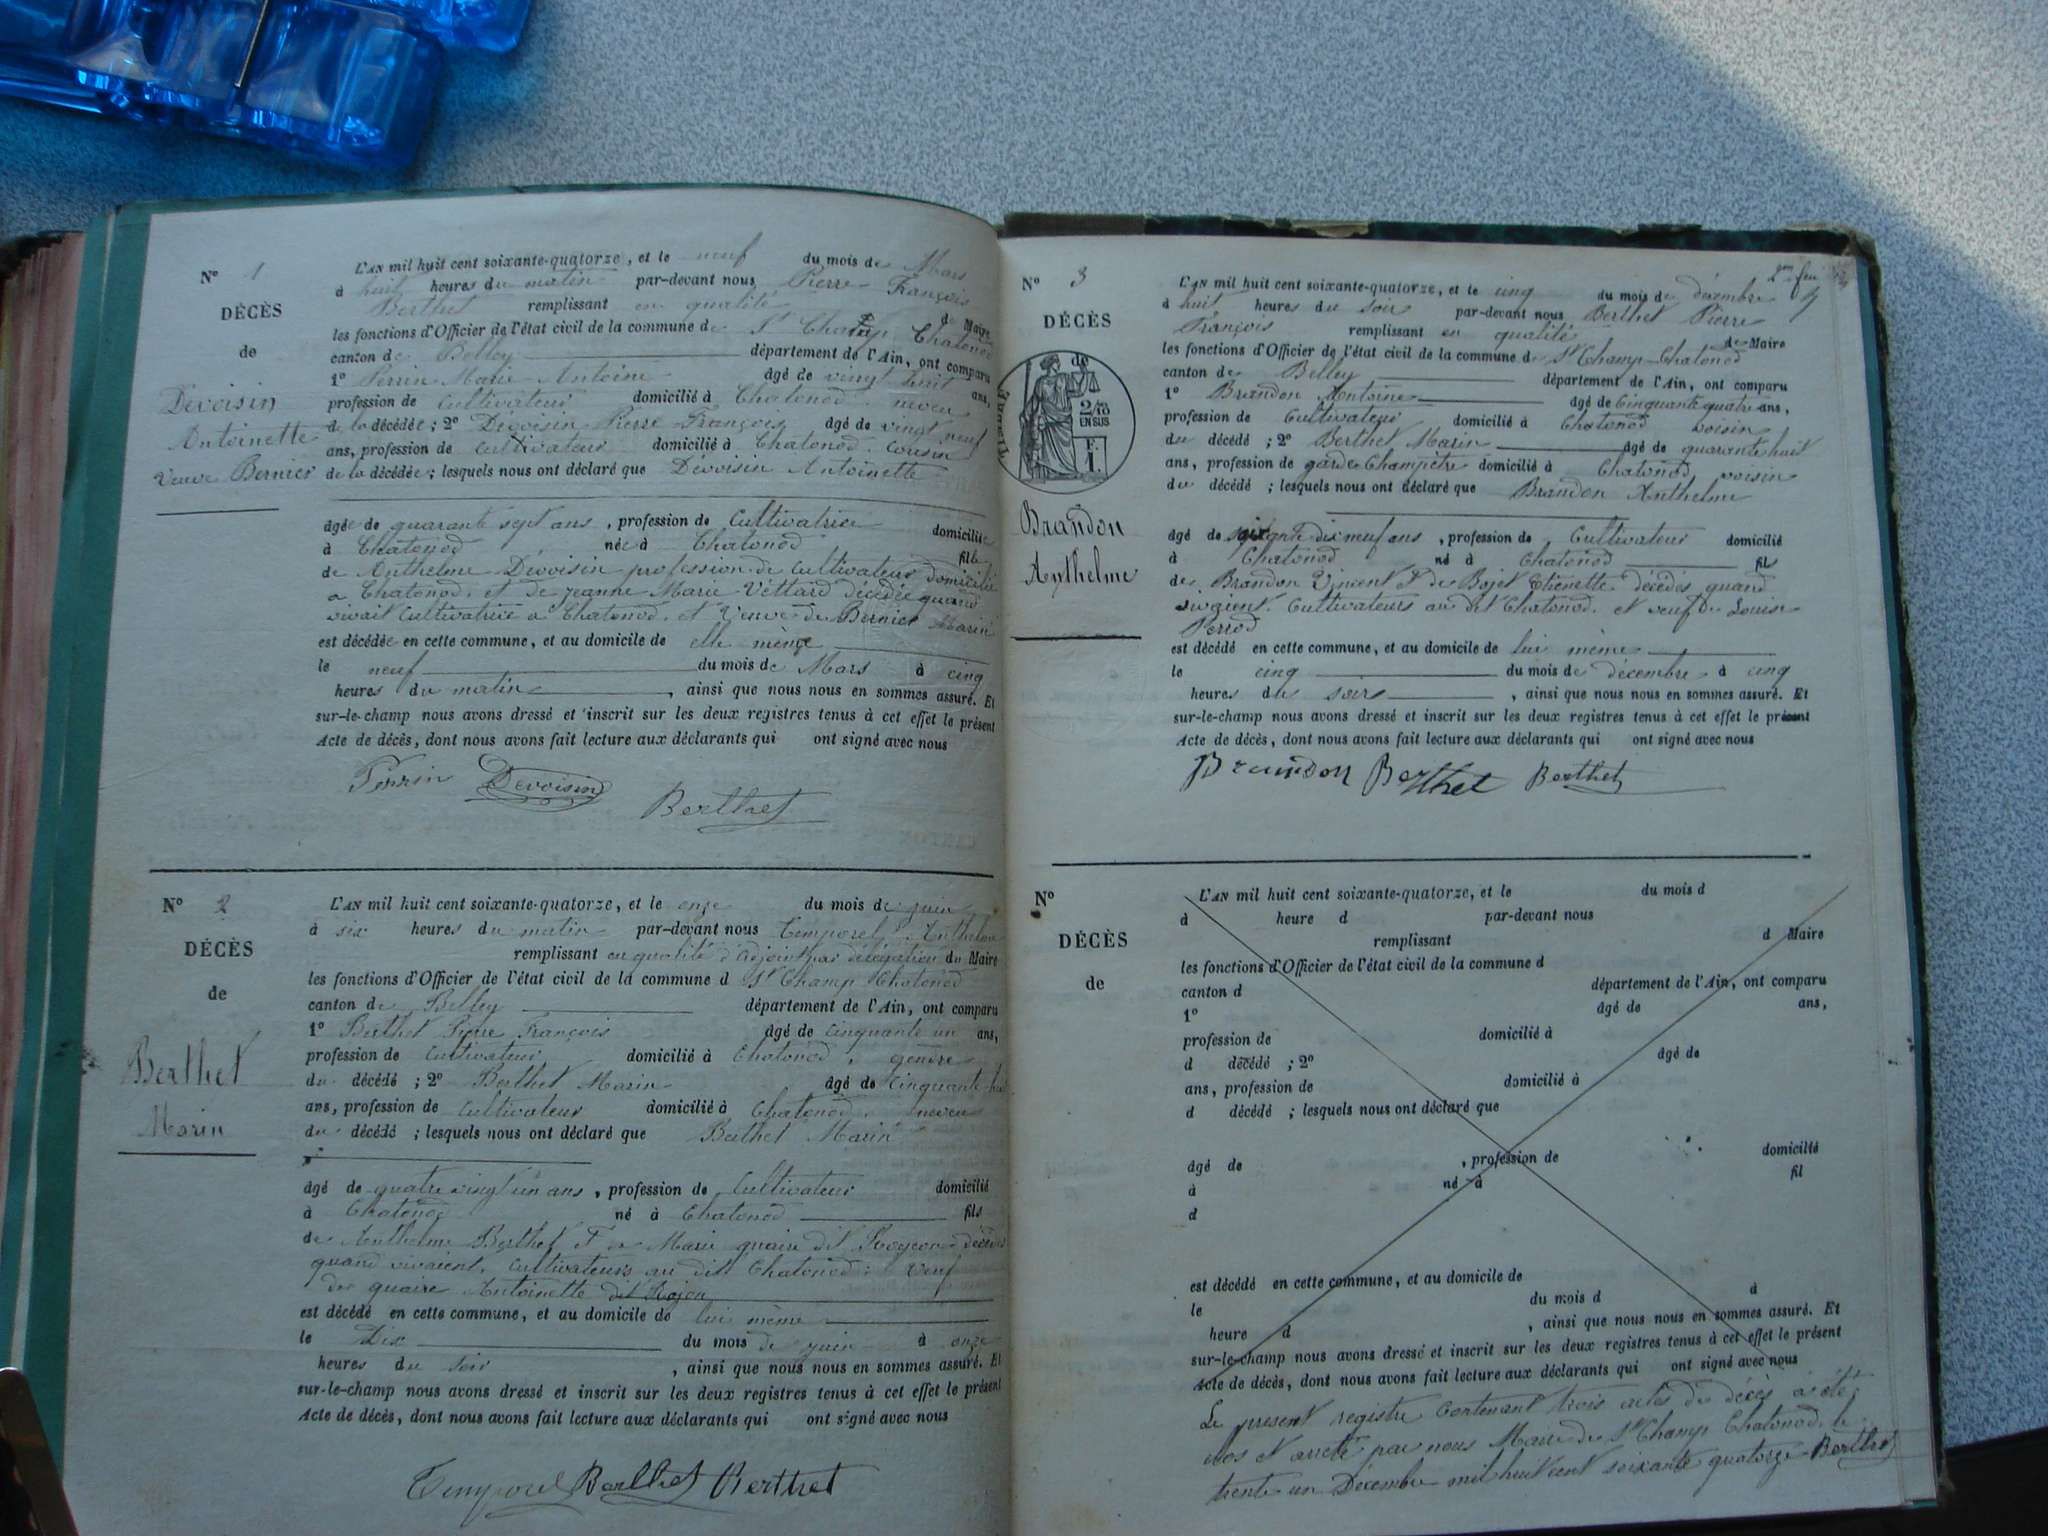 N° 1
DÉCÈS
de
Devoisin
Antoinette
Veuve Bernier
L'AN mil huit cent soixante-quatorze, et le neuf du mois de Mars
à huit heures du matin par-devant nous Pierre François
Berthet remplissant en qualité de Maire
les fonctions d'Officier de l'état civil de la commune de St Champ Chatonod
canton de Belley département de l'Ain, ont comparu
1° Perrin Marie Antoine âgé de vingt huit ans,
profession de Cultivateur domicilié à Chatonod neveu
de la décédée ; 2° Devoisin Pierre François âgé de vingt neuf
ans, profession de Cultivateur domicilié à Chatonod. Cousin
de la décédée ; lesquels nous ont déclaré que Devoisin Antoinette
âgée de quarante sept ans, profession de Cultivatrice domiciliée
à Chatonod née à Chatonod fille
de Anthelme Devoisin profession de Cultivateur domicilié
a Chatonod, et de Jeanne Marie Vettard décédée quand
vivait Cultivatrice a Chatonod, et Veuve de Bernier Marin
est décédée en cette commune, et au domicile de elle même
le neuf du mois de Mars à cinq
heures du matin, ainsi que nous nous en sommes assuré. Et
sur-le-champ nous avons dressé et inscrit sur les deux registres tenus à cet effet le présent
Acte de décès, dont nous avons fait lecture aux déclarants qui ont signé avec nous
Perrin Devoisin
Berthet
N° 2
DÉCÈS
de
Berthet
Marin
L'AN mil huit cent soixante-quatorze, et le onze du mois de juin
à six heures du matin par-devant nous Temporel Anthelme
remplissant en qualité d'adjoint par délégation du Maire
les fonctions d'Officier de l'état civil de la commune d St Champ Chatonod
canton de Belley département de l'Ain, ont comparu
1° Berthet Pierre François âgé de cinquante un ans,
profession de Cultivateur domicilié à Chatonod, gendre
du décédé ; 2° Berthet Marin âgé de cinquante
ans, profession de Cultivateur domicilié à Chatonod, neveu
du décédé ; lesquels nous ont déclaré que Berthet Marin
âgé de quatre vingt un ans, profession de Cultivateur domicilié
à Chatonod né à Chatonod fils
de Anthelme Berthet et de Marie quaire dit décédés
quand vivaient, Cultivateurs au dit Chatonod; veuf
de quaire Antoinette dit Rojon
est décédé en cette commune, et au domicile de lui même
le Dix du mois de juin à onze
heures du soir, ainsi que nous nous en sommes assuré. Et
sur-le-champ nous avons dressé et inscrit sur les deux registres tenus à cet effet le présent
Acte de décès, dont nous avons fait lecture aux déclarants qui ont signé avec nous
Temporel Berthet Berthet
2me feu
N° 3
DÉCÈS
de
2/10
EN SUS
F.
1.
Brandon
Anthelme
L'AN mil huit cent soixante-quatorze, et le cinq du mois de décembre
à huit heures du soir par-devant nous Berthet Pierre
François remplissant en qualité de Maire
les fonctions d'Officier de l'état civil de la commune d St Champ-Chatonod
canton de Belley département de l'Ain, ont comparu
1° Brandon Antoine âgé de Cinquante quatre ans,
profession de Cultivateur domicilié à Chatonod voisin
du décédé ; 2° Berthet Marin âgé de quarante huit
ans, profession de garde Champêtre domicilié à Chatonod voisin
du décédé ; lesquels nous ont déclaré que Brandon Anthelme
âgé de soixante dix neuf ans, profession de Cultivateur domicilié
à Chatonod né à Chatonod fils
de Brandon Vincent et de Bojet Etienette décédés quand
vivaient. Cultivateurs au dit Chatonod. et veuf de Louise
Perrod
est décédé en cette commune, et au domicile de lui même
le cinq du mois de décembre à cinq
heures du soir, ainsi que nous nous en sommes assuré. Et
sur-le-champ nous avons dressé et inscrit sur les deux registres tenus à cet effet le présent
Acte de décès, dont nous avons fait lecture aux déclarants qui ont signé avec nous
Brandon Berthet Berthet
N°
DÉCÈS
de
L'AN mil huit cent soixante-quatorze, et le du mois d
à heure d par-devant nous
remplissant d Maire
les fonctions d'Officier de l'état civil de la commune d
canton d département de l'Ain, ont comparu
1° âgé de ans,
profession de domicilié à
d décédé ; 2° âgé de
ans, profession de domicilié à
d décédé ; lesquels nous ont déclaré que
âgé de , profession de domicilié
à né à fil
d
est décédé en cette commune, et au domicile de
le du mois d à
heure d , ainsi que nous nous en sommes assuré. Et
sur-le-champ nous avons dressé et inscrit sur les deux registres tenus à cet effet le présent
Acte de décès, dont nous avons fait lecture aux déclarants qui ont signé avec nous
Le present registre Contenant trois actes de décès a été
clos et arreté par nous Maire de St Champ Chatonod, le
trente un Decembre mil huit cent soixante quatorze Berthet